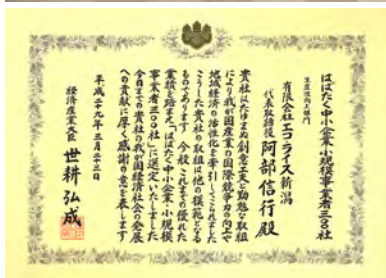 はばたく中小企業・小規模事業者三〇〇社
生産性向上部門
有限会社エコ・ライス新潟
代表取締役 阿部信行殿
貴社はたゆまぬ創意工夫と勤勉な取組
により我が国産業の国際競争力の向上や
地域経済の活性化を牽引してこられました
こうした貴社の取組は他の模範となる
ものであります 今般これまでの優れた
業績を踏まえ「はばたく中小企業・小規模
事業者三〇〇社」に選定いたしました
今日までの貴社の我が国経済社会の発展
への貢献に厚く感謝の意を表します
平成二十九年三月二十三日
経済産業大臣 世耕弘成